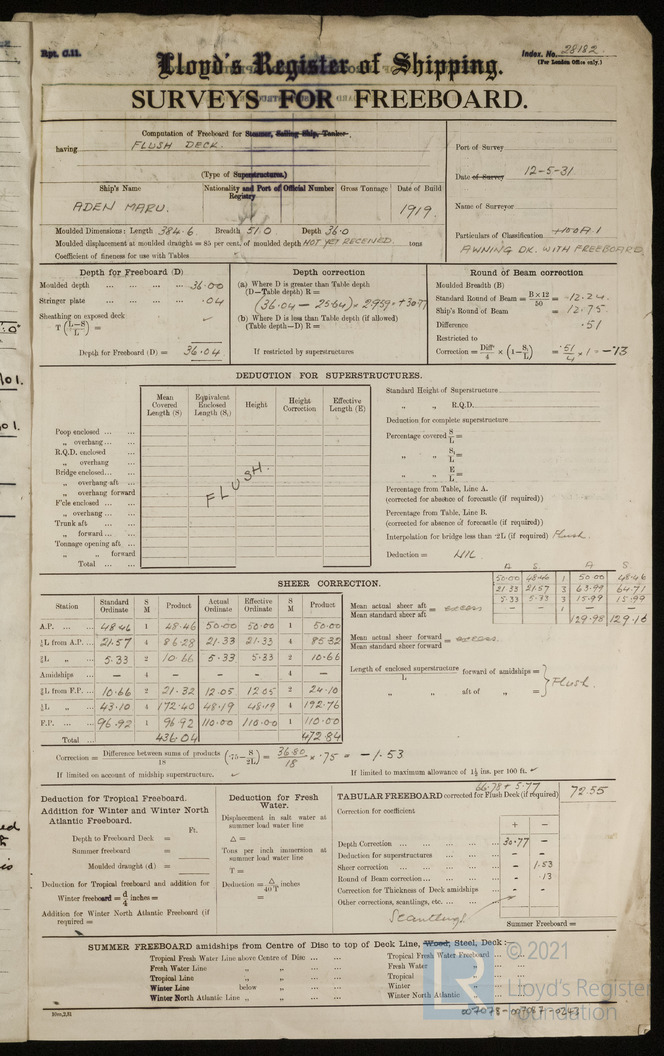 Rpt. C.11.
Index. No. 28182.
(For London Office only.)
Lloyd's Register of Shipping.
SURVEYS FOR FREEBOARD.
Computation of Freeboard for Steamer, Sailing Ship, Tanker,
having FLUSH DECK.
(Type of Superstructures.)
Port of Survey
Date of Survey 12-5-31
Name of Surveyor
Particulars of Classification +100A1
AWNING DK. WITH FREEBOARD
Ship's Name Nationality and Port of Registry Official Number Gross Tonnage Date of Build
ADEN MARU. 1919.
Moulded Dimensions: Length 384.6 Breadth 51.0 Depth 36.0
Moulded displacement at moulded draught = 85 per cent. of moulded depth NOT YET RECEIVED. tons
Coefficient of fineness for use with Tables
Depth for Freeboard (D)
Moulded depth ... ... ... ... 36.00
Stringer plate ... ... ... ... .04
Sheathing on exposed deck
T (L-S/L) =
Depth for Freeboard (D) = 36.04
Depth correction
(a) Where D is greater than Table depth
(D—Table depth) R =
(36.04 - 25.64) × 2.959 = +30.77
(b) Where D is less than Table depth (if allowed)
(Table depth—D) R =
If restricted by superstructures
Round of Beam correction
Moulded Breadth (B)
Standard Round of Beam = B × 12/50 = 12.24
Ship's Round of Beam = 12.75
Difference .51
Restricted to
Correction = Diffce/4 × (1 - S₁/L) = .51/4 × 1 = -.13
DEDUCTION FOR SUPERSTRUCTURES.
Mean Covered Length (S) Equivalent Enclosed Length (S₁) Height Height Correction Effective Length (E)
Poop enclosed ... ...
„ overhang ... ...
R.Q.D. enclosed ...
„ overhang
Bridge enclosed ... ...
„ overhang aft ...
„ overhang forward
F'cle enclosed ... ...
„ overhang ... ...
Trunk aft ... ...
„ forward ... ...
Tonnage opening aft ...
„ „ forward
Total ... ...
FLUSH.
Standard Height of Superstructure
„ „ R.Q.D.
Deduction for complete superstructure
Percentage covered S/L =
„ „ S₁/L =
„ „ E/L =
Percentage from Table, Line A.
(corrected for absence of forecastle (if required))
Percentage from Table, Line B.
(corrected for absence of forecastle (if required))
Interpolation for bridge less than ·2L (if required) Flush.
Deduction = NIL
SHEER CORRECTION.
Station Standard Ordinate S M Product Actual Ordinate Effective Ordinate S M Product
A.P. ... ... 48.46 1 48.46 50.00 50.00 1 50.00
⅙L from A.P. ... 21.57 4 86.28 21.33 21.33 4 85.32
⅓L „ ... 5.33 2 10.66 5.33 5.33 2 10.66
Amidships ... — 4 — — — 4 —
⅓L from F.P. ... 10.66 2 21.32 12.05 12.05 2 24.10
⅙L „ ... 43.10 4 172.40 48.19 48.19 4 192.76
F.P. ... ... 96.92 1 96.92 110.00 110.00 1 110.00
Total ... 436.04 472.84
A S A S
50.00 48.46 1 50.00 48.46
21.33 21.57 3 63.99 64.71
5.33 5.33 3 15.99 15.99
— — 1 — —
129.98 129.16
Mean actual sheer aft / Mean standard sheer aft = excess
Mean actual sheer forward / Mean standard sheer forward = excess.
Length of enclosed superstructure / L forward of amidships =
„ „ aft of „ =
Flush.
Correction = Difference between sums of products / 18 (·75 - S/2L) = 36.80/18 × .75 = -1.53
If limited on account of midship superstructure.
If limited to maximum allowance of 1½ ins. per 100 ft.
Deduction for Tropical Freeboard.
Addition for Winter and Winter North Atlantic Freeboard.
Ft.
Depth to Freeboard Deck =
Summer freeboard =
Moulded draught (d) =
Deduction for Tropical freeboard and addition for
Winter freeboard = d/4 inches =
Addition for Winter North Atlantic Freeboard (if required =
Deduction for Fresh Water.
Displacement in salt water at summer load water line
△ =
Tons per inch immersion at summer load water line
T =
Deduction = △/40 T inches
=
66.78 + 5.77
TABULAR FREEBOARD corrected for Flush Deck (if required) 72.55
Correction for coefficient
+ −
Depth Correction ... ... ... ... 30.77 −
Deduction for superstructures ... ... ... − −
Sheer correction ... ... ... ... − 1.53
Round of Beam correction ... ... ... − .13
Correction for Thickness of Deck amidships ... − −
Other corrections, scantlings, etc. ... ...
Scantlings
Summer Freeboard =
SUMMER FREEBOARD amidships from Centre of Disc to top of Deck Line, Wood, Steel, Deck :—
Tropical Fresh Water Line above Centre of Disc ... ...
Fresh Water Line „ „ ... ...
Tropical Line „ „ ... ...
Winter Line below „ ... ...
Winter North Atlantic Line „ „ ... ...
Tropical Fresh Water Freeboard ... ...
Fresh Water „ ... ...
Tropical „ ... ...
Winter „ ... ...
Winter North Atlantic „ ... ...
© 2021
LR
Lloyd's Register
Foundation
007078-007087-0243